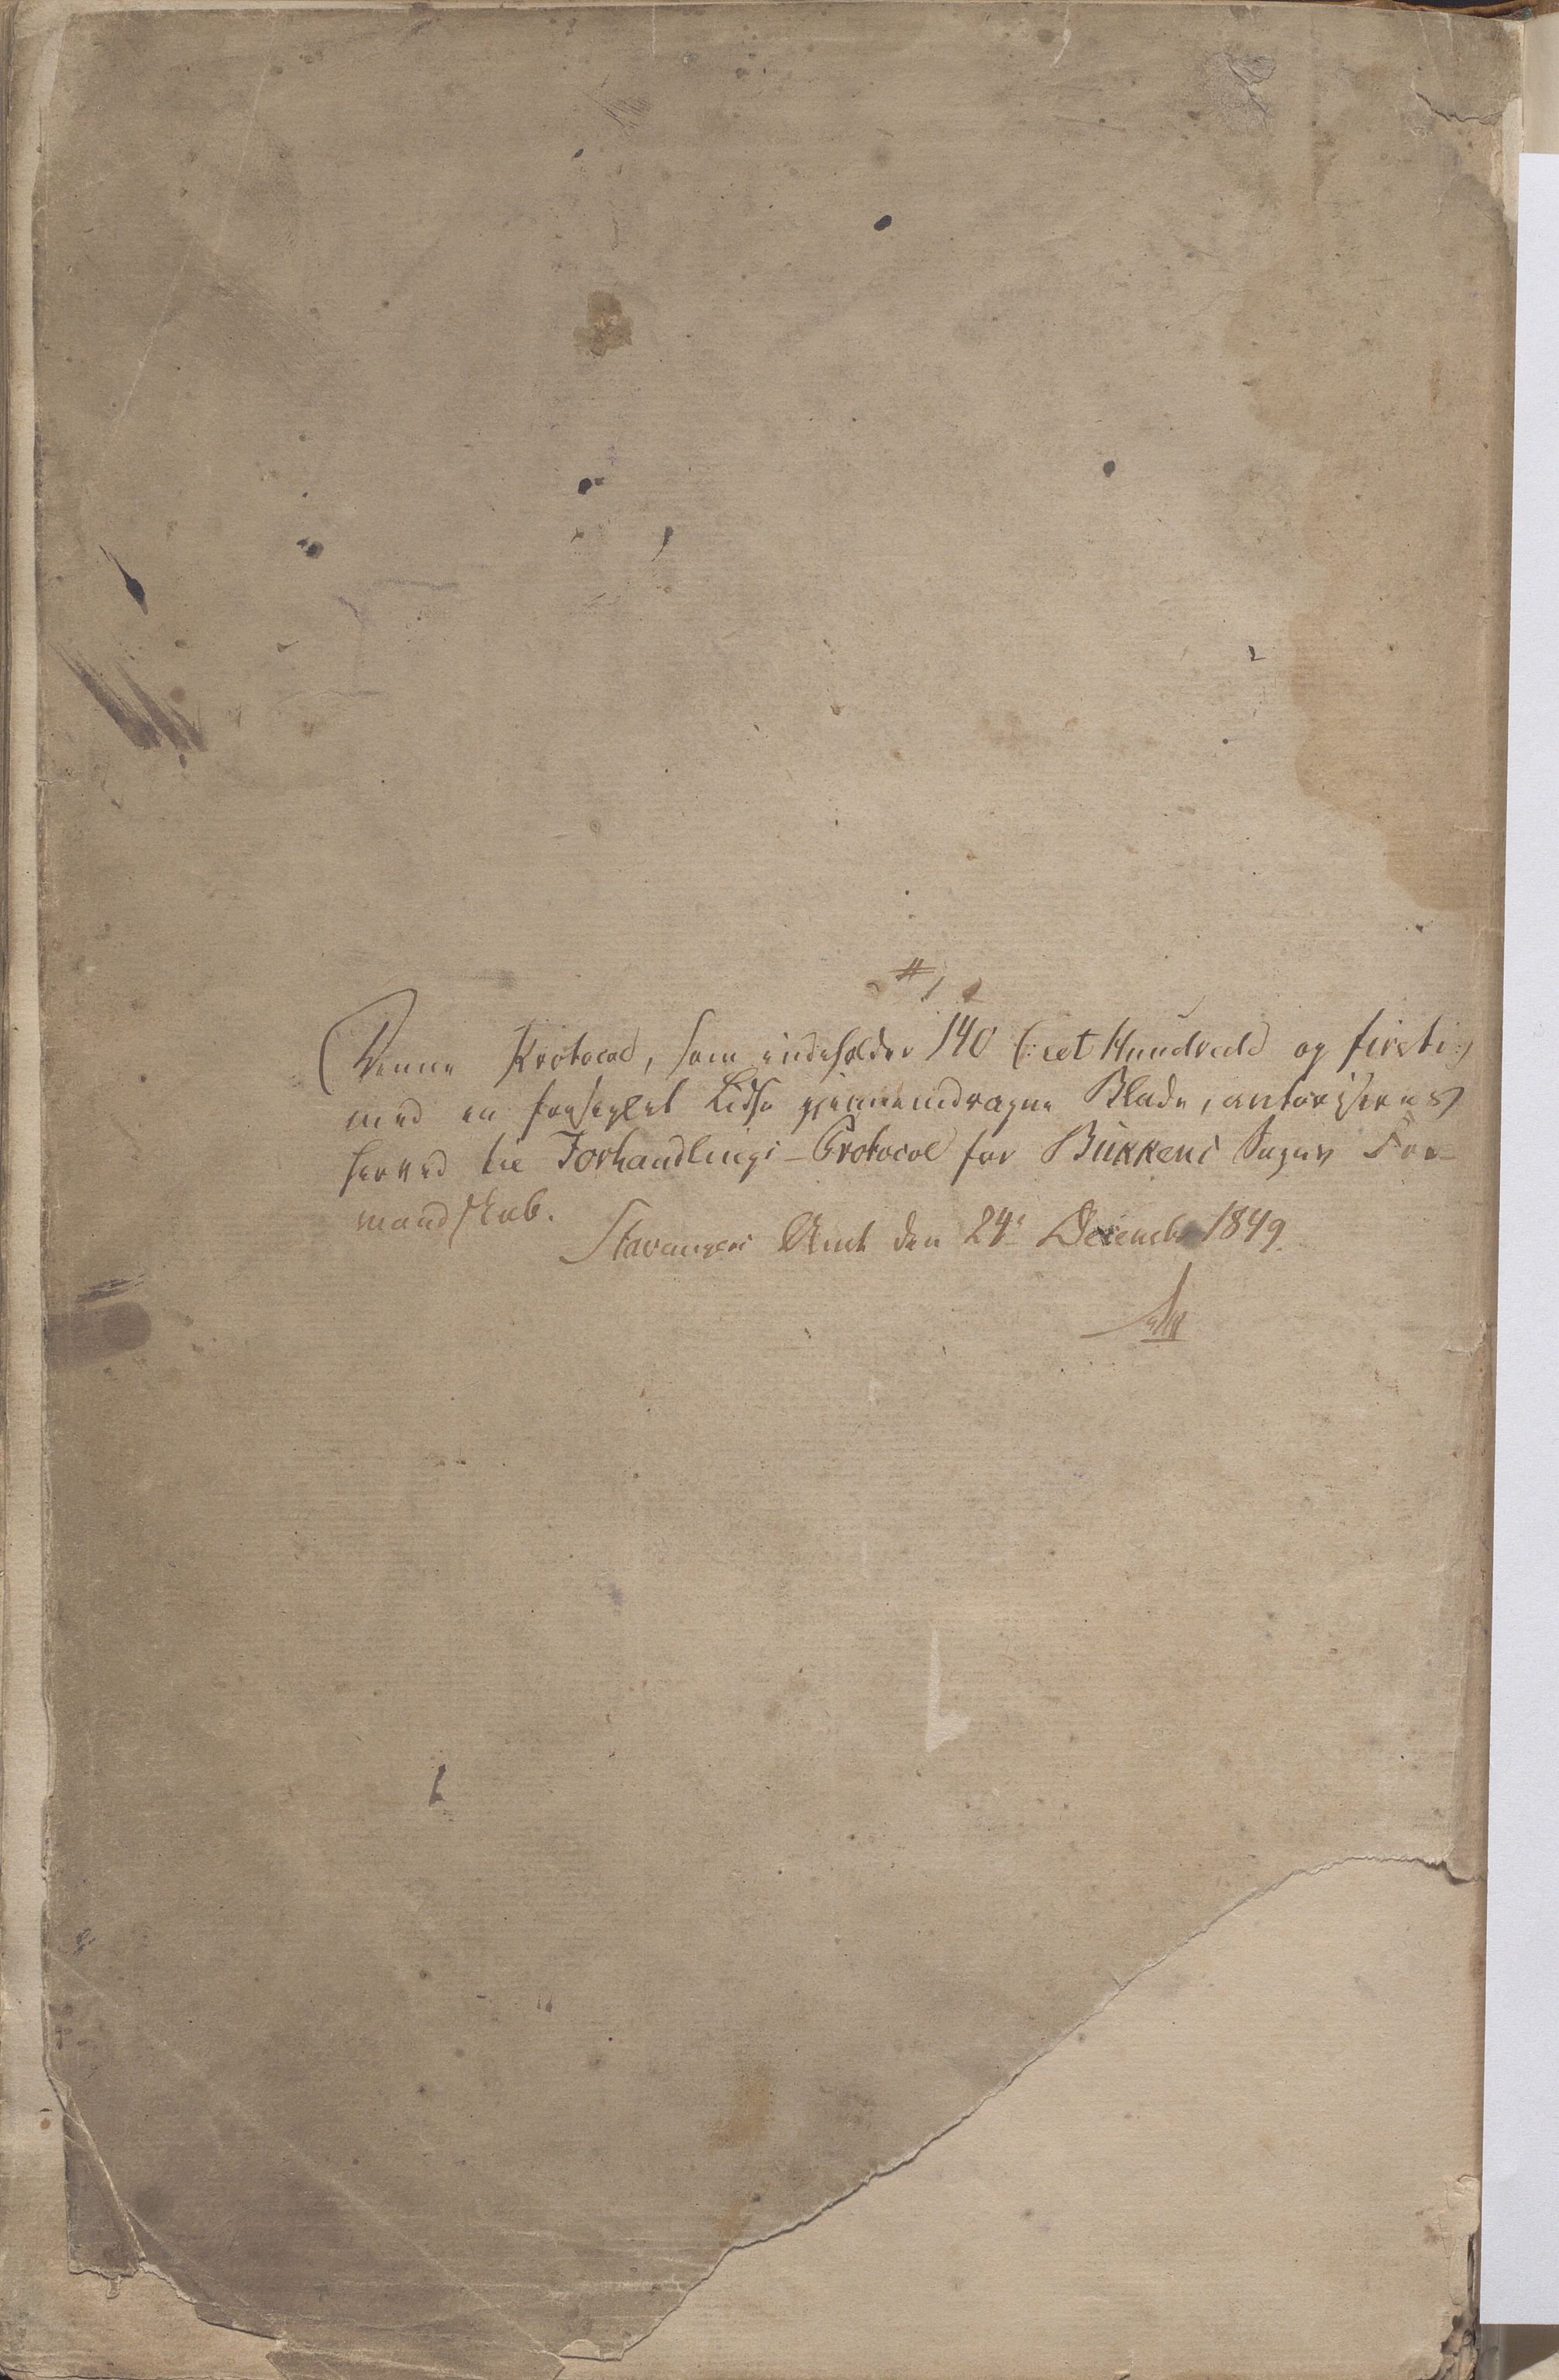 # 1
Denne Protocol, som indeholder 140 (: eet Hundrede og firsti :)
med en forseglet Lidse gjennemdragne Blade, autoriseres
herved til Forhandlings-Protocol for Bukkens Sogns For-
mandskab.
Stavangers Amt den 24 December 1849.